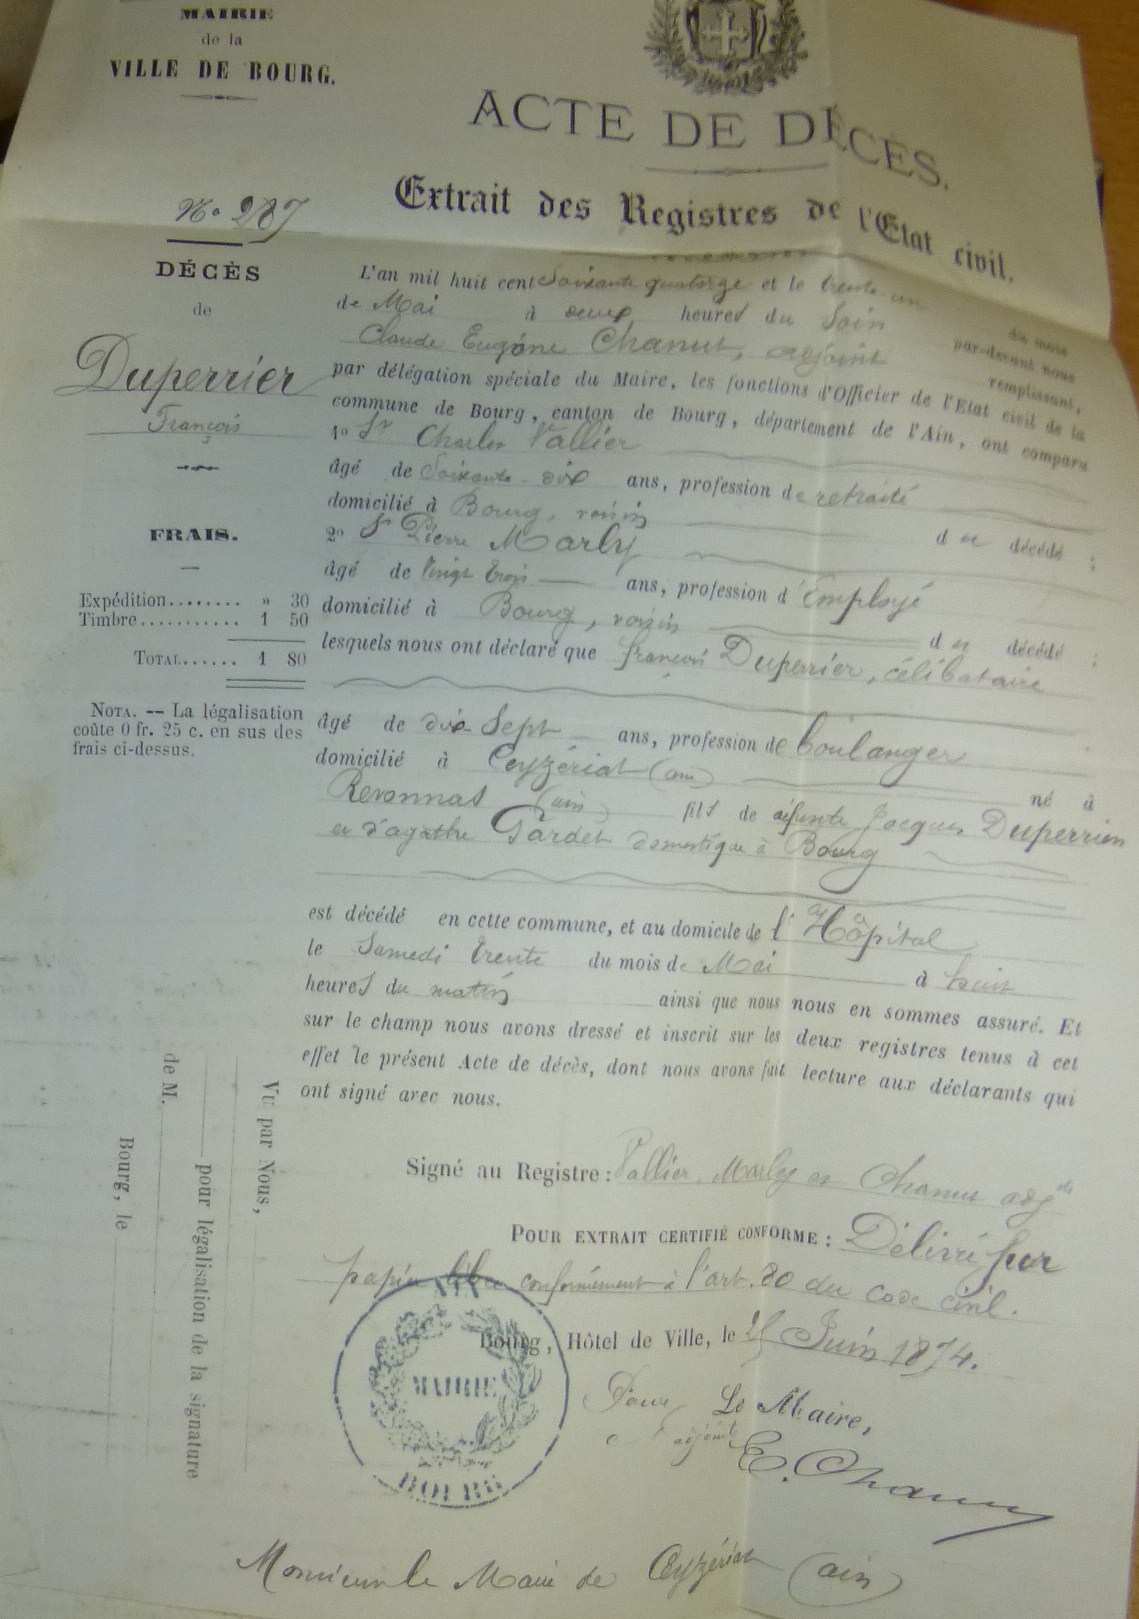 MAIRIE
de la
VILLE DE BOURG.
ACTE DE DÉCÈS.
Extrait des Registres de l'Etat civil.
No 287
DÉCÈS
de
Duperrier
François
FRAIS.
Expédition........ » 30
Timbre........... 1 50
TOTAL...... 1 80
NOTA. -- La légalisation
coûte 0 fr. 25 c. en sus des
frais ci-dessus.
L'an mil huit cent Soixante quatorze et le trente un du mois
de Mai à deux heures du Soir par-devant nous
Claude Eugène Chanut, adjoint remplissant,
par délégation spéciale du Maire, les fonctions d'Officier de l'Etat civil de la
commune de Bourg, canton de Bourg, département de l'Ain, ont comparu
1o Sr Charles Vallier
âgé de Soixante-dix ans, profession de retraité
domicilié à Bourg, voisin du décédé ;
2o Sr Pierre Marly
âgé de Vingt trois ans, profession d'Employé
domicilié à Bourg, voisin du décédé ;
lesquels nous ont déclaré que françois Duperrier, célibataire
âgé de dix-Sept ans, profession de boulanger
domicilié à Ceyzériat (ain) né à
Revonnas (ain) fils de Jacques Duperrier
et d'agathe Gardet domestique à Bourg
est décédé en cette commune, et au domicile de l'Hôpital
le Samedi trente du mois de Mai à huit
heures du matin ainsi que nous nous en sommes assuré. Et
sur le champ nous avons dressé et inscrit sur les deux registres tenus à cet
effet le présent Acte de décès, dont nous avons fait lecture aux déclarants qui
ont signé avec nous.
Signé au Registre : Vallier, Marly et Chanut adjt
POUR EXTRAIT CERTIFIÉ CONFORME : Délivré sur
papier libre conformément à l'art. 80 du code civil.
Bourg, Hôtel de Ville, le 25 Juin 1874.
Pour Le Maire,
adjoint
E. Chanut
MAIRIE
BOURG
Vu par Nous,
pour légalisation de la signature
de M.
Bourg, le
Monsieur le Maire de Ceyzériat (ain)